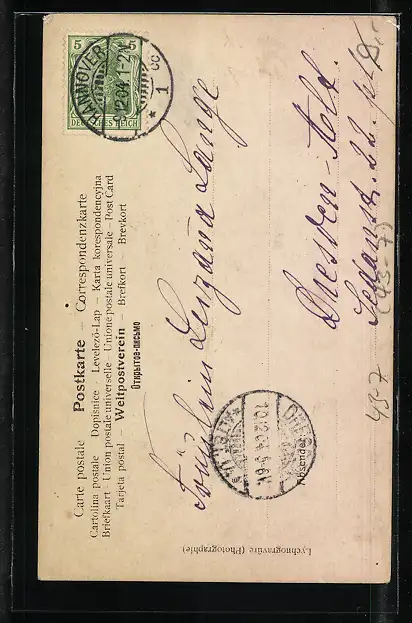 5 5
DEUTSCHES REICH
HANNOVER
9.12.04. 1-2N.
* 1 *
cc
Carte postale Postkarte – Correspondenzkarte
Cartolina postale Dopisnice - Levelező-Lap – Karta korespondencyjna
Briefkaart - Union postale universelle – Unione postale universale – Post Card
Tarjeta postal Weltpostverein – Brefkort – Brevkort
Открытое-письмо
Fräulein Suzana Lange
Dresden-Alt.
22
DRESDEN
10.12.04. 5-6V.
Absender
437
Lychnogravüre (Photographie)